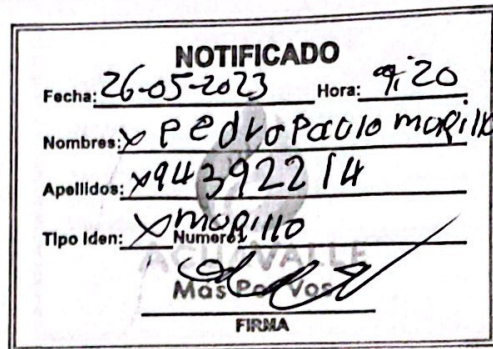 NOTIFICADO
Fecha: 26-05-2023 Hora: 9:20
Nombres: x Pedro Paulo morillo
Apellidos: x94392214
Tipo Iden: x Numero: morillo
ACUAVALLE
Mas Por Vos
FIRMA